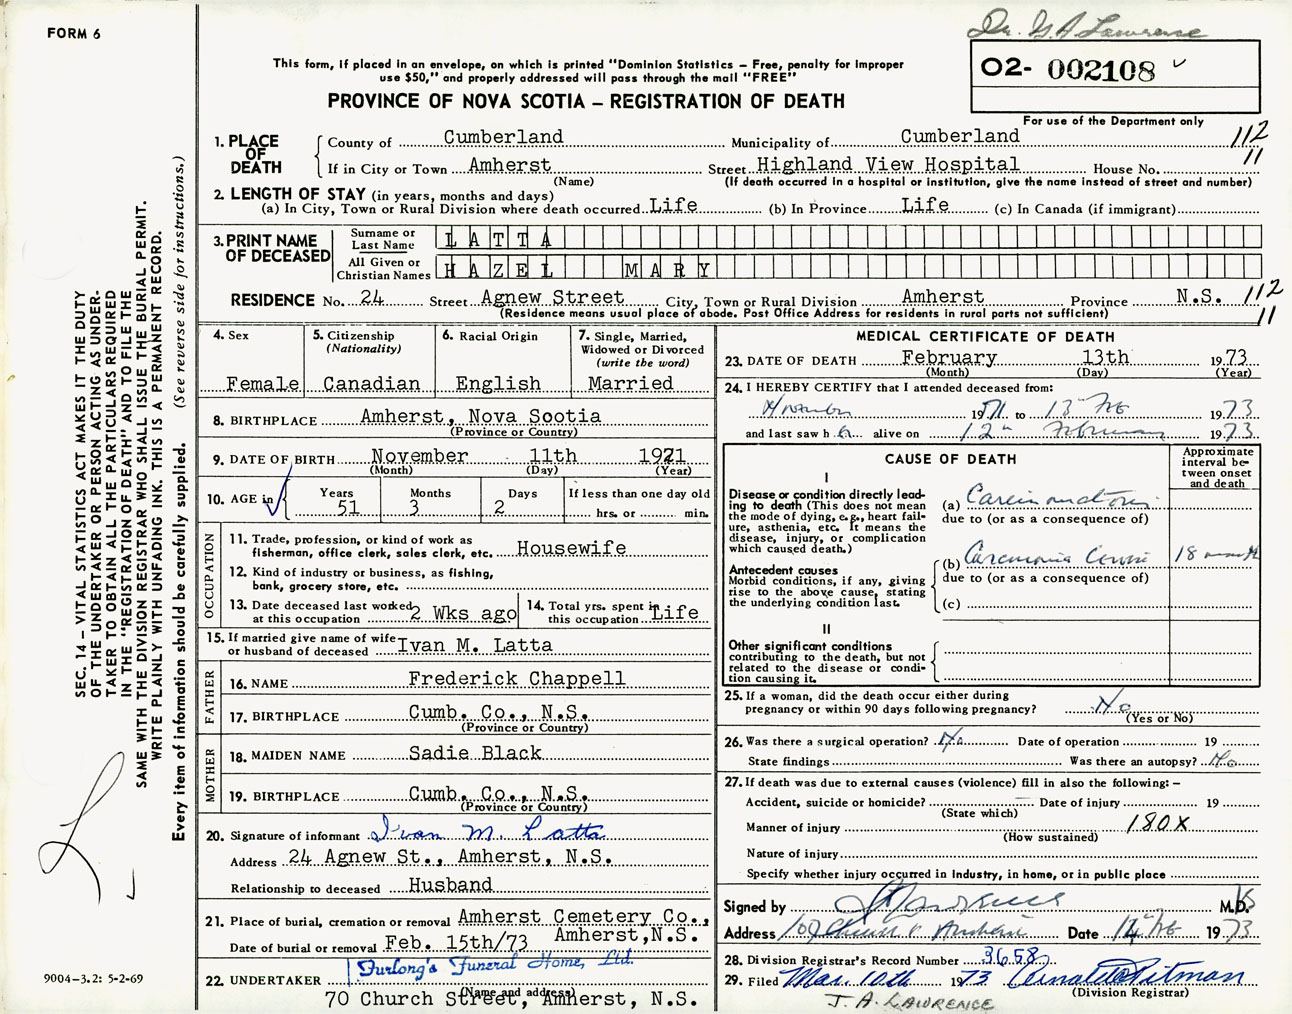 FORM 6
Dr. G. A. Lawrence
This form, if placed in an envelope, on which is printed "Dominion Statistics – Free, penalty for improper
use $50," and properly addressed will pass through the mail "FREE"
O2- 002108
PROVINCE OF NOVA SCOTIA – REGISTRATION OF DEATH
For use of the Department only
1. PLACE OF DEATH
County of Cumberland Municipality of Cumberland 112
If in City or Town Amherst Street Highland View Hospital House No. 11
(Name) (If death occurred in a hospital or institution, give the name instead of street and number)
2. LENGTH OF STAY (in years, months and days)
(a) In City, Town or Rural Division where death occurred Life (b) In Province Life (c) In Canada (if immigrant)
3. PRINT NAME OF DECEASED
Surname or Last Name LATTA
All Given or Christian Names HAZEL MARY
RESIDENCE No. 24 Street Agnew Street City, Town or Rural Division Amherst Province N.S. 112
(Residence means usual place of abode. Post Office Address for residents in rural parts not sufficient) 11
4. Sex Female
5. Citizenship (Nationality) Canadian
6. Racial Origin English
7. Single, Married, Widowed or Divorced (write the word) Married
8. BIRTHPLACE Amherst, Nova Scotia
(Province or Country)
9. DATE OF BIRTH November 11th 1921
(Month) (Day) (Year)
10. AGE in Years 51 Months 3 Days 2 If less than one day old hrs. or min.
OCCUPATION
11. Trade, profession, or kind of work as
fisherman, office clerk, sales clerk, etc. Housewife
12. Kind of industry or business, as fishing,
bank, grocery store, etc.
13. Date deceased last worked
at this occupation 2 Wks ago
14. Total yrs. spent in
this occupation Life
15. If married give name of wife
or husband of deceased Ivan M. Latta
FATHER
16. NAME Frederick Chappell
17. BIRTHPLACE Cumb. Co., N.S.
(Province or Country)
MOTHER
18. MAIDEN NAME Sadie Black
19. BIRTHPLACE Cumb. Co., N.S.
(Province or Country)
20. Signature of informant Ivan M. Latta
Address 24 Agnew St., Amherst, N.S.
Relationship to deceased Husband
21. Place of burial, cremation or removal Amherst Cemetery Co.,
Date of burial or removal Feb. 15th/73 Amherst, N.S.
22. UNDERTAKER Furlong's Funeral Home, Ltd.
(Name and address)
70 Church Street, Amherst, N.S.
MEDICAL CERTIFICATE OF DEATH
23. DATE OF DEATH February 13th 1973
(Month) (Day) (Year)
24. I HEREBY CERTIFY that I attended deceased from:
November 1971 to 13th Feb 1973
and last saw her alive on 12th February 1973
CAUSE OF DEATH
Approximate interval between onset and death
I
Disease or condition directly lead-
ing to death (This does not mean
the mode of dying, e.g., heart fail-
ure, asthenia, etc. It means the
disease, injury, or complication
which caused death.)
(a) Carcinomatosis
due to (or as a consequence of)
Antecedent causes
Morbid conditions, if any, giving
rise to the above cause, stating
the underlying condition last.
(b) Carcinoma Cervix 18 months
due to (or as a consequence of)
(c)
II
Other significant conditions
contributing to the death, but not
related to the disease or condi-
tion causing it.
25. If a woman, did the death occur either during
pregnancy or within 90 days following pregnancy? No
(Yes or No)
26. Was there a surgical operation? No Date of operation 19
State findings Was there an autopsy? No
27. If death was due to external causes (violence) fill in also the following: –
Accident, suicide or homicide? Date of injury 19
(State which)
Manner of injury 180X
(How sustained)
Nature of injury
Specify whether injury occurred in industry, in home, or in public place
Signed by M.D.
Address Amherst Date 14 Feb 1973
28. Division Registrar's Record Number 3658
29. Filed Mar. 10th 1973
(Division Registrar)
J. A. LAWRENCE
SEC. 14 – VITAL STATISTICS ACT MAKES IT THE DUTY
OF THE UNDERTAKER OR PERSON ACTING AS UNDER-
TAKER TO OBTAIN ALL THE PARTICULARS REQUIRED
IN THE "REGISTRATION OF DEATH" AND TO FILE THE
SAME WITH THE DIVISION REGISTRAR WHO SHALL ISSUE THE BURIAL PERMIT.
WRITE PLAINLY WITH UNFADING INK. THIS IS A PERMANENT RECORD.
Every item of information should be carefully supplied. (See reverse side for instructions.)
9004-3.2: 5-2-69